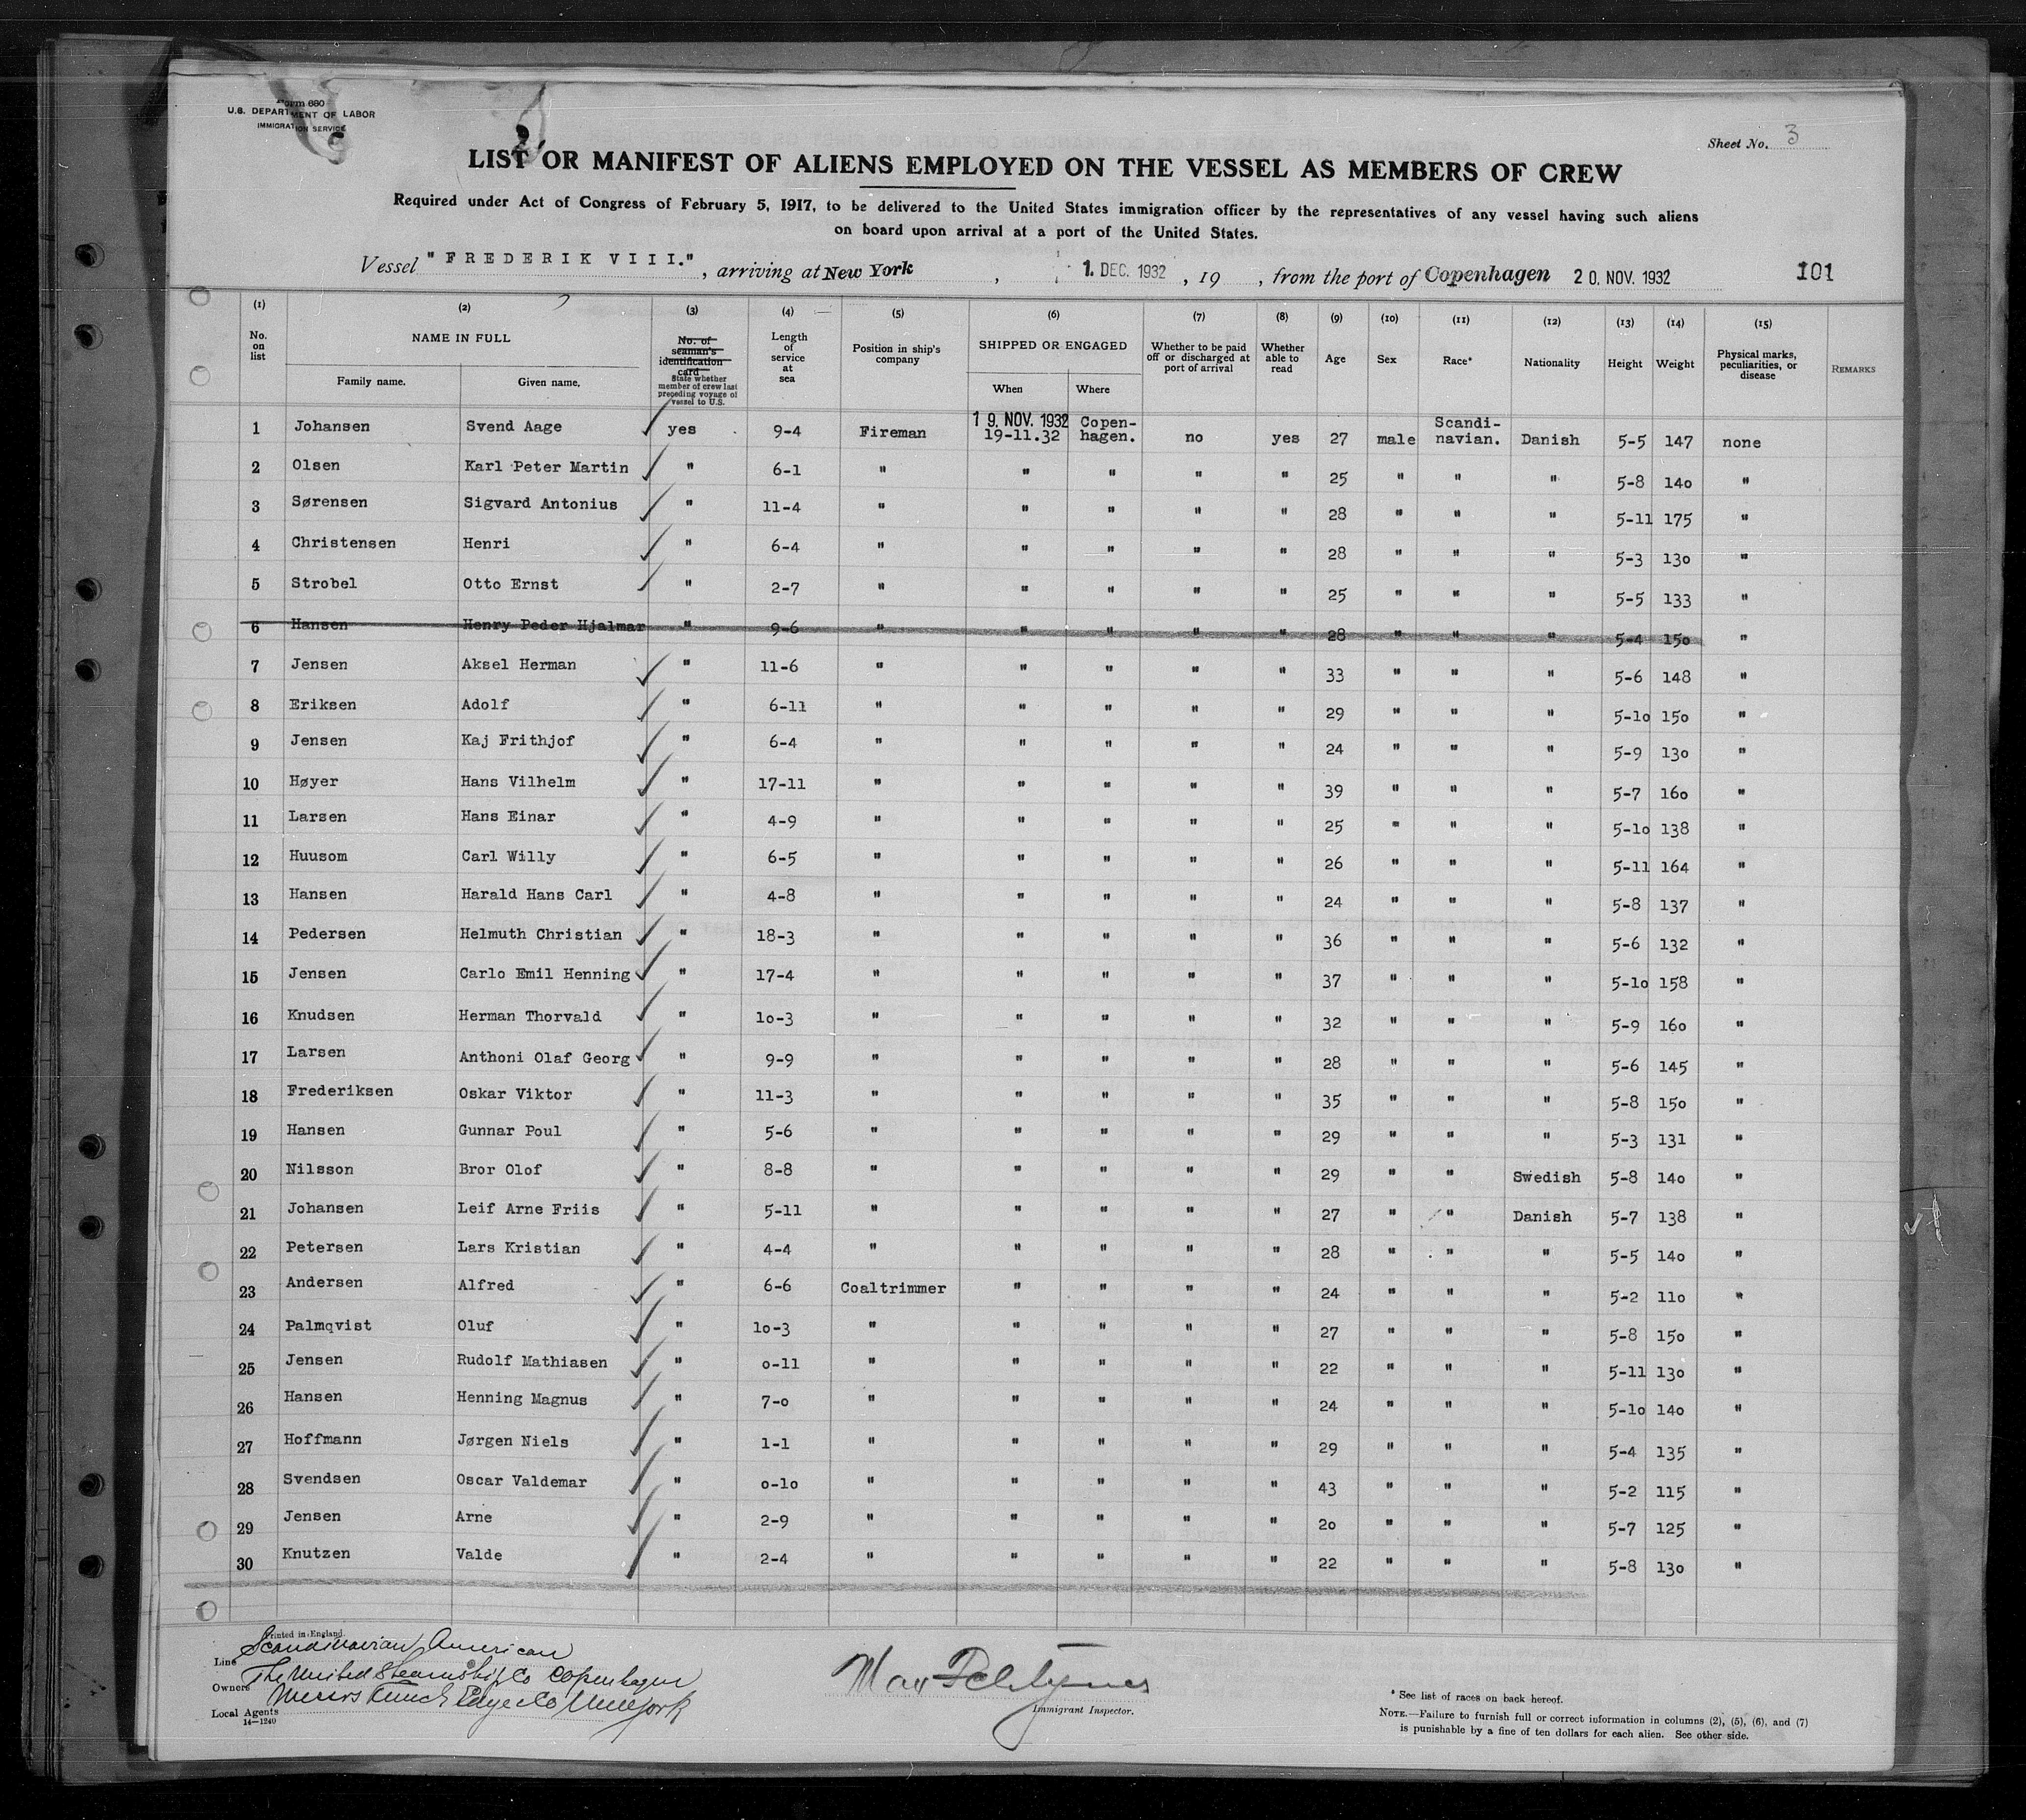 Form 680
U.S. DEPARTMENT OF LABOR
IMMIGRATION SERVICE
Sheet No. 3
LIST OR MANIFEST OF ALIENS EMPLOYED ON THE VESSEL AS MEMBERS OF CREW
Required under Act of Congress of February 5, 1917, to be delivered to the United States immigration officer by the representatives of any vessel having such aliens
on board upon arrival at a port of the United States.
Vessel "FREDERIK VIII.", arriving at New York, 1. DEC. 1932, 19 , from the port of Copenhagen 20. NOV. 1932 101
(1) (2) (3) (4) (5) (6) (7) (8) (9) (10) (11) (12) (13) (14) (15)
No. on list NAME IN FULL Family name. Given name. No. of seaman's identification card State whether member of crew last preceding voyage of vessel to U.S. Length of service at sea Position in ship's company SHIPPED OR ENGAGED When Where Whether to be paid off or discharged at port of arrival Whether able to read Age Sex Race* Nationality Height Weight Physical marks, peculiarities, or disease REMARKS
1 Johansen Svend Aage yes 9-4 Fireman 19. NOV. 1932 19-11.32 Copen-hagen. no yes 27 male Scandi-navian. Danish 5-5 147 none
2 Olsen Karl Peter Martin " 6-1 " " " " " 25 " " " 5-8 140 "
3 Sørensen Sigvard Antonius " 11-4 " " " " " 28 " " " 5-11 175 "
4 Christensen Henri " 6-4 " " " " " 28 " " " 5-3 130 "
5 Strobel Otto Ernst " 2-7 " " " " " 25 " " " 5-5 133 "
6 Hansen Henry Peder Hjalmar " 9-6 " " " " " 28 " " " 5-4 150 "
7 Jensen Aksel Herman " 11-6 " " " " " 33 " " " 5-6 148 "
8 Eriksen Adolf " 6-11 " " " " " 29 " " " 5-10 150 "
9 Jensen Kaj Frithjof " 6-4 " " " " " 24 " " " 5-9 130 "
10 Høyer Hans Vilhelm " 17-11 " " " " " 39 " " " 5-7 160 "
11 Larsen Hans Einar " 4-9 " " " " " 25 " " " 5-10 138 "
12 Huusom Carl Willy " 6-5 " " " " " 26 " " " 5-11 164 "
13 Hansen Harald Hans Carl " 4-8 " " " " " 24 " " " 5-8 137 "
14 Pedersen Helmuth Christian " 18-3 " " " " " 36 " " " 5-6 132 "
15 Jensen Carlo Emil Henning " 17-4 " " " " " 37 " " " 5-10 158 "
16 Knudsen Herman Thorvald " 10-3 " " " " " 32 " " " 5-9 160 "
17 Larsen Anthoni Olaf Georg " 9-9 " " " " " 28 " " " 5-6 145 "
18 Frederiksen Oskar Viktor " 11-3 " " " " " 35 " " " 5-8 150 "
19 Hansen Gunnar Poul " 5-6 " " " " " 29 " " " 5-3 131 "
20 Nilsson Bror Olof " 8-8 " " " " " 29 " " Swedish 5-8 140 "
21 Johansen Leif Arne Friis " 5-11 " " " " " 27 " " Danish 5-7 138 "
22 Petersen Lars Kristian " 4-4 " " " " " 28 " " " 5-5 140 "
23 Andersen Alfred " 6-6 Coaltrimmer " " " " 24 " " " 5-2 110 "
24 Palmqvist Oluf " 10-3 " " " " " 27 " " " 5-8 150 "
25 Jensen Rudolf Mathiasen " 0-11 " " " " " 22 " " " 5-11 130 "
26 Hansen Henning Magnus " 7-0 " " " " " 24 " " " 5-10 140 "
27 Hoffmann Jørgen Niels " 1-1 " " " " " 29 " " " 5-4 135 "
28 Svendsen Oscar Valdemar " 0-10 " " " " " 43 " " " 5-2 115 "
29 Jensen Arne " 2-9 " " " " " 20 " " " 5-7 125 "
30 Knutzen Valde " 2-4 " " " " " 22 " " " 5-8 130 "
Printed in England.
Line Scandinavian American
Owners The United Steamship Co Copenhagen
Local Agents Messrs Funch Edye Co New York
14-1240
Immigrant Inspector.
* See list of races on back hereof.
NOTE.—Failure to furnish full or correct information in columns (2), (5), (6), and (7)
is punishable by a fine of ten dollars for each alien. See other side.